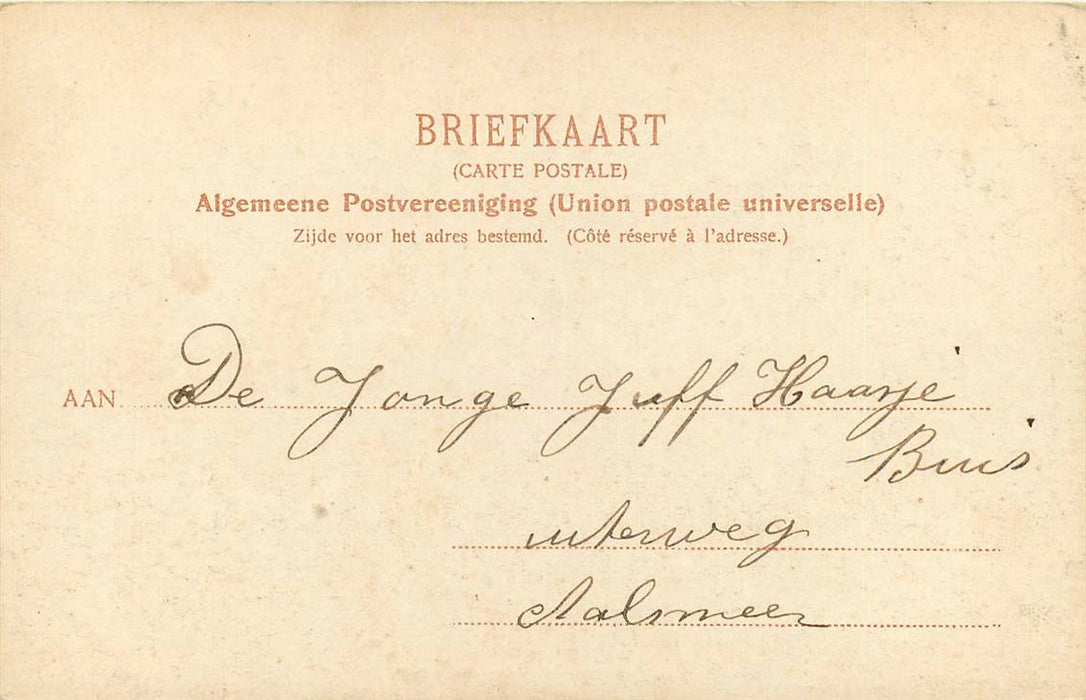 BRIEFKAART
(CARTE POSTALE)
Algemeene Postvereeniging (Union postale universelle)
Zijde voor het adres bestemd. (Côté réservé à l'adresse.)
AAN De Jonge Juff Haasje
Buis
uiterweg
Aalsmeer